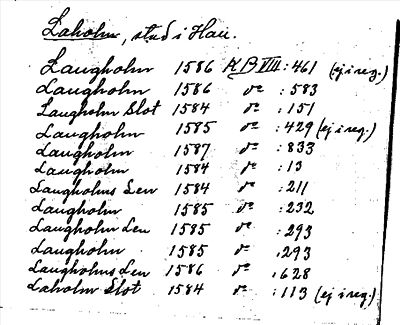 Laholm, stad i Hall.
Laugholm 1586 KB VIII:461 (ej i reg.)
Laugholm 1586 do :583
Laugholm Slot 1584 do :151
Laugholm 1585 do :429 (ej i reg.)
Laugholm 1587 do :833
Laugholm 1584 do :13
Laugholms Len 1584 do :211
Laugholm 1585 do :232
Laugholm Len 1585 do :293
Laugholm 1585 do :293
Laugholms Len 1586 do :628
Laholm Slot 1584 do :113 (ej i reg.)